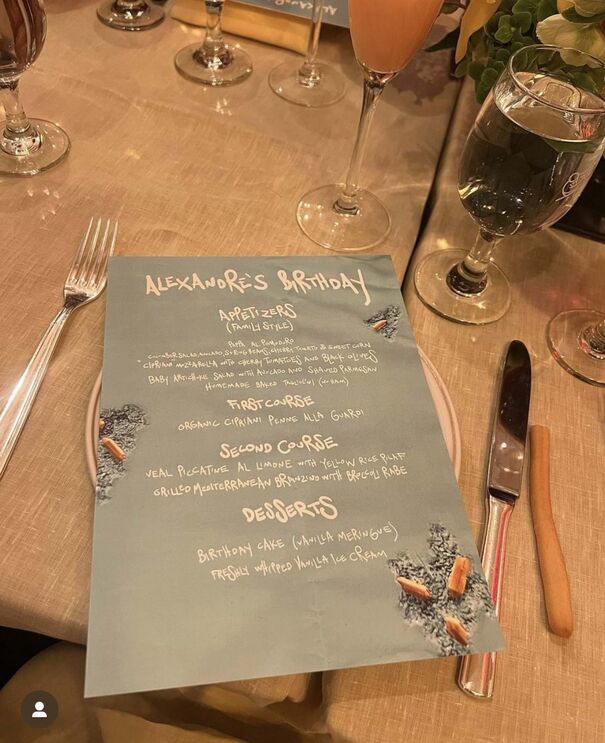 ALEXANDRE'S BIRTHDAY
APPETIZERS
(FAMILY STYLE)
PAPPA AL POMODORO
CUCUMBER SALAD, AVOCADO, STRING BEANS, CHERRY TOMATO & SWEET CORN
CIPRIANI MOZZARELLA WITH CHERRY TOMATOES AND BLACK OLIVES
BABY ARTICHOKE SALAD WITH AVOCADO AND SHAVED PARMESAN
HOMEMADE BAKED TAGLIOLINI (W/HAM)
FIRST COURSE
ORGANIC CIPRIANI PENNE ALLA GUARDI
SECOND COURSE
VEAL PICCATINE AL LIMONE WITH YELLOW RICE PILAF
GRILLED MEDITERRANEAN BRANZINO WITH BROCCOLI RABE
DESSERTS
BIRTHDAY CAKE (VANILLA MERINGUE)
FRESHLY WHIPPED VANILLA ICE CREAM